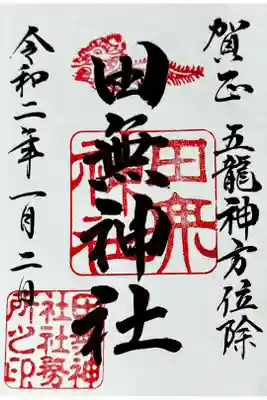 賀正 五龍神方位除
田無神社
令和二年一月二日
田無神社
田無神
社社務
所之印